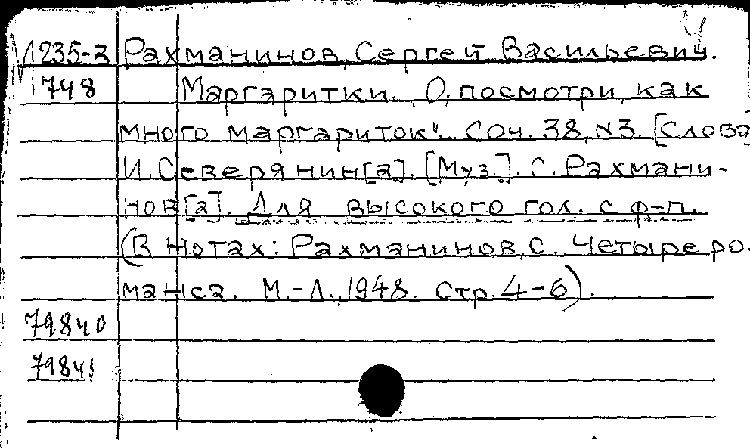 1235-3 Рахманинов, Сергей Васильевич.
1748 Маргаритки. „О, посмотри, как
много маргариток". Соч. 38, №3. [Слова
И. Северянин[а]. [Муз.]. С. Рахмани-
нов[а]. Для высокого гол. с ф-п.
(В нотах: Рахманинов, С. Четыре ро-
манса. М.-Л., 1948. Стр. 4-6).
79840
79841